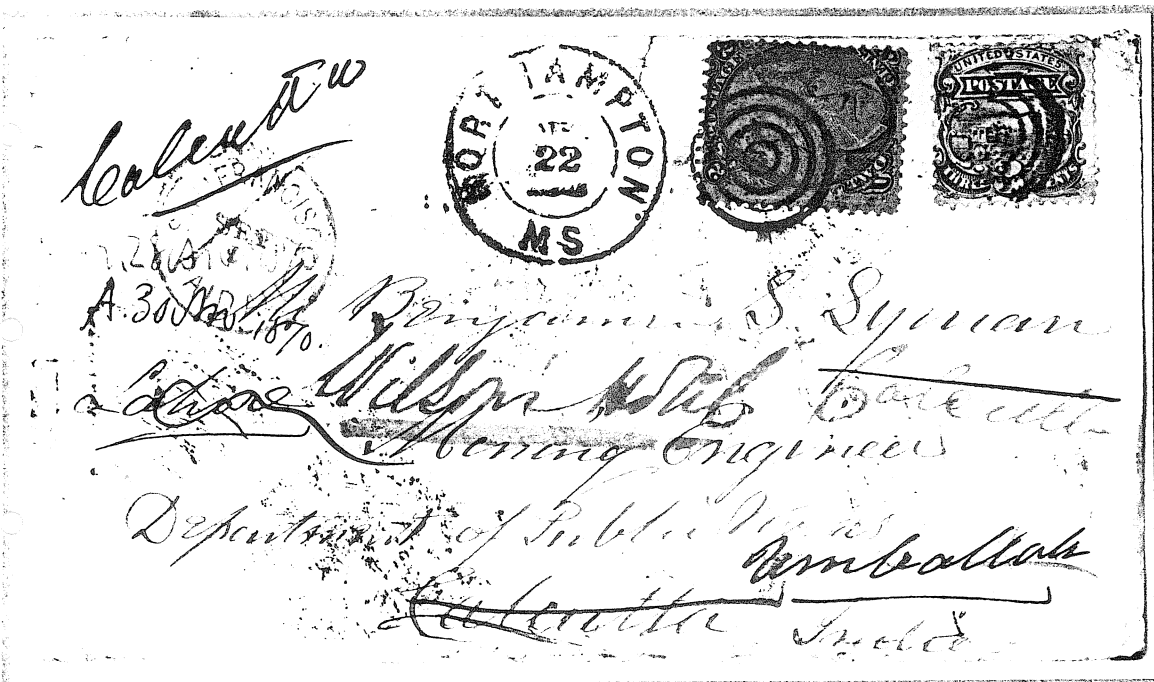 Calcutta
NORTHAMPTON
22
MS
UNITED STATES
POSTAGE
FRANCISCO
A. 30 1870.
Benjamin S. Lyman
Wilson's Hotel Calcutta
Lahore
Mining Engineer
Department of Public Works
Umballah
Calcutta India